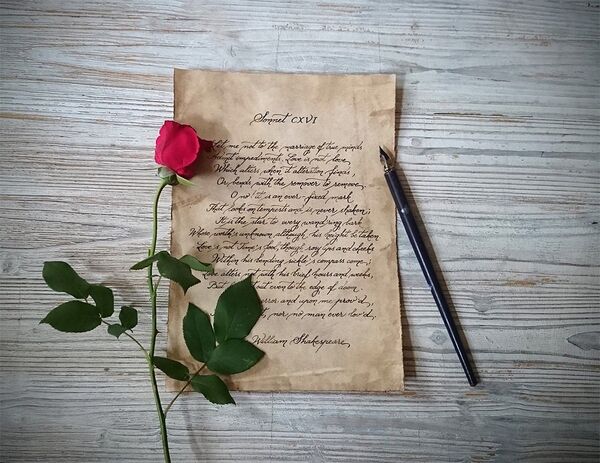 Sonnet CXVI
Let me not to the marriage of true minds
Admit impediments. Love is not love
Which alters, when it alteration finds,
Or bends with the remover to remove,
O no! it is an ever-fixed mark
That looks on tempests and is never shaken;
It is the star to every wand'ring bark
Whose worth's unknown although his height be taken
Love's not Time's fool, though rosy lips and cheeks
Within his bending sickle's compass come;
Love alters not with his brief hours and weeks,
But bears it out even to the edge of doom
error and upon me prov'd,
nor no man ever lov'd,
William Shakespeare